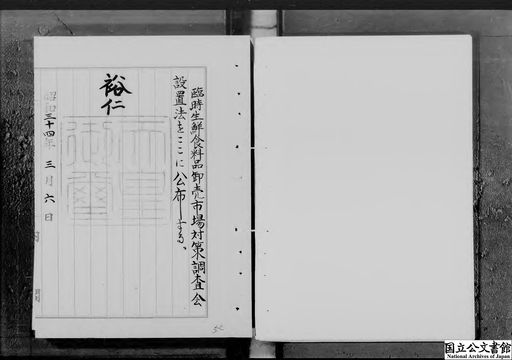 臨時生鮮食料品卸売市場対策調査会
設置法をここに公布する。
裕仁
天皇
御璽
昭和三十四年三月六日
国立公文書館
National Archives of Japan